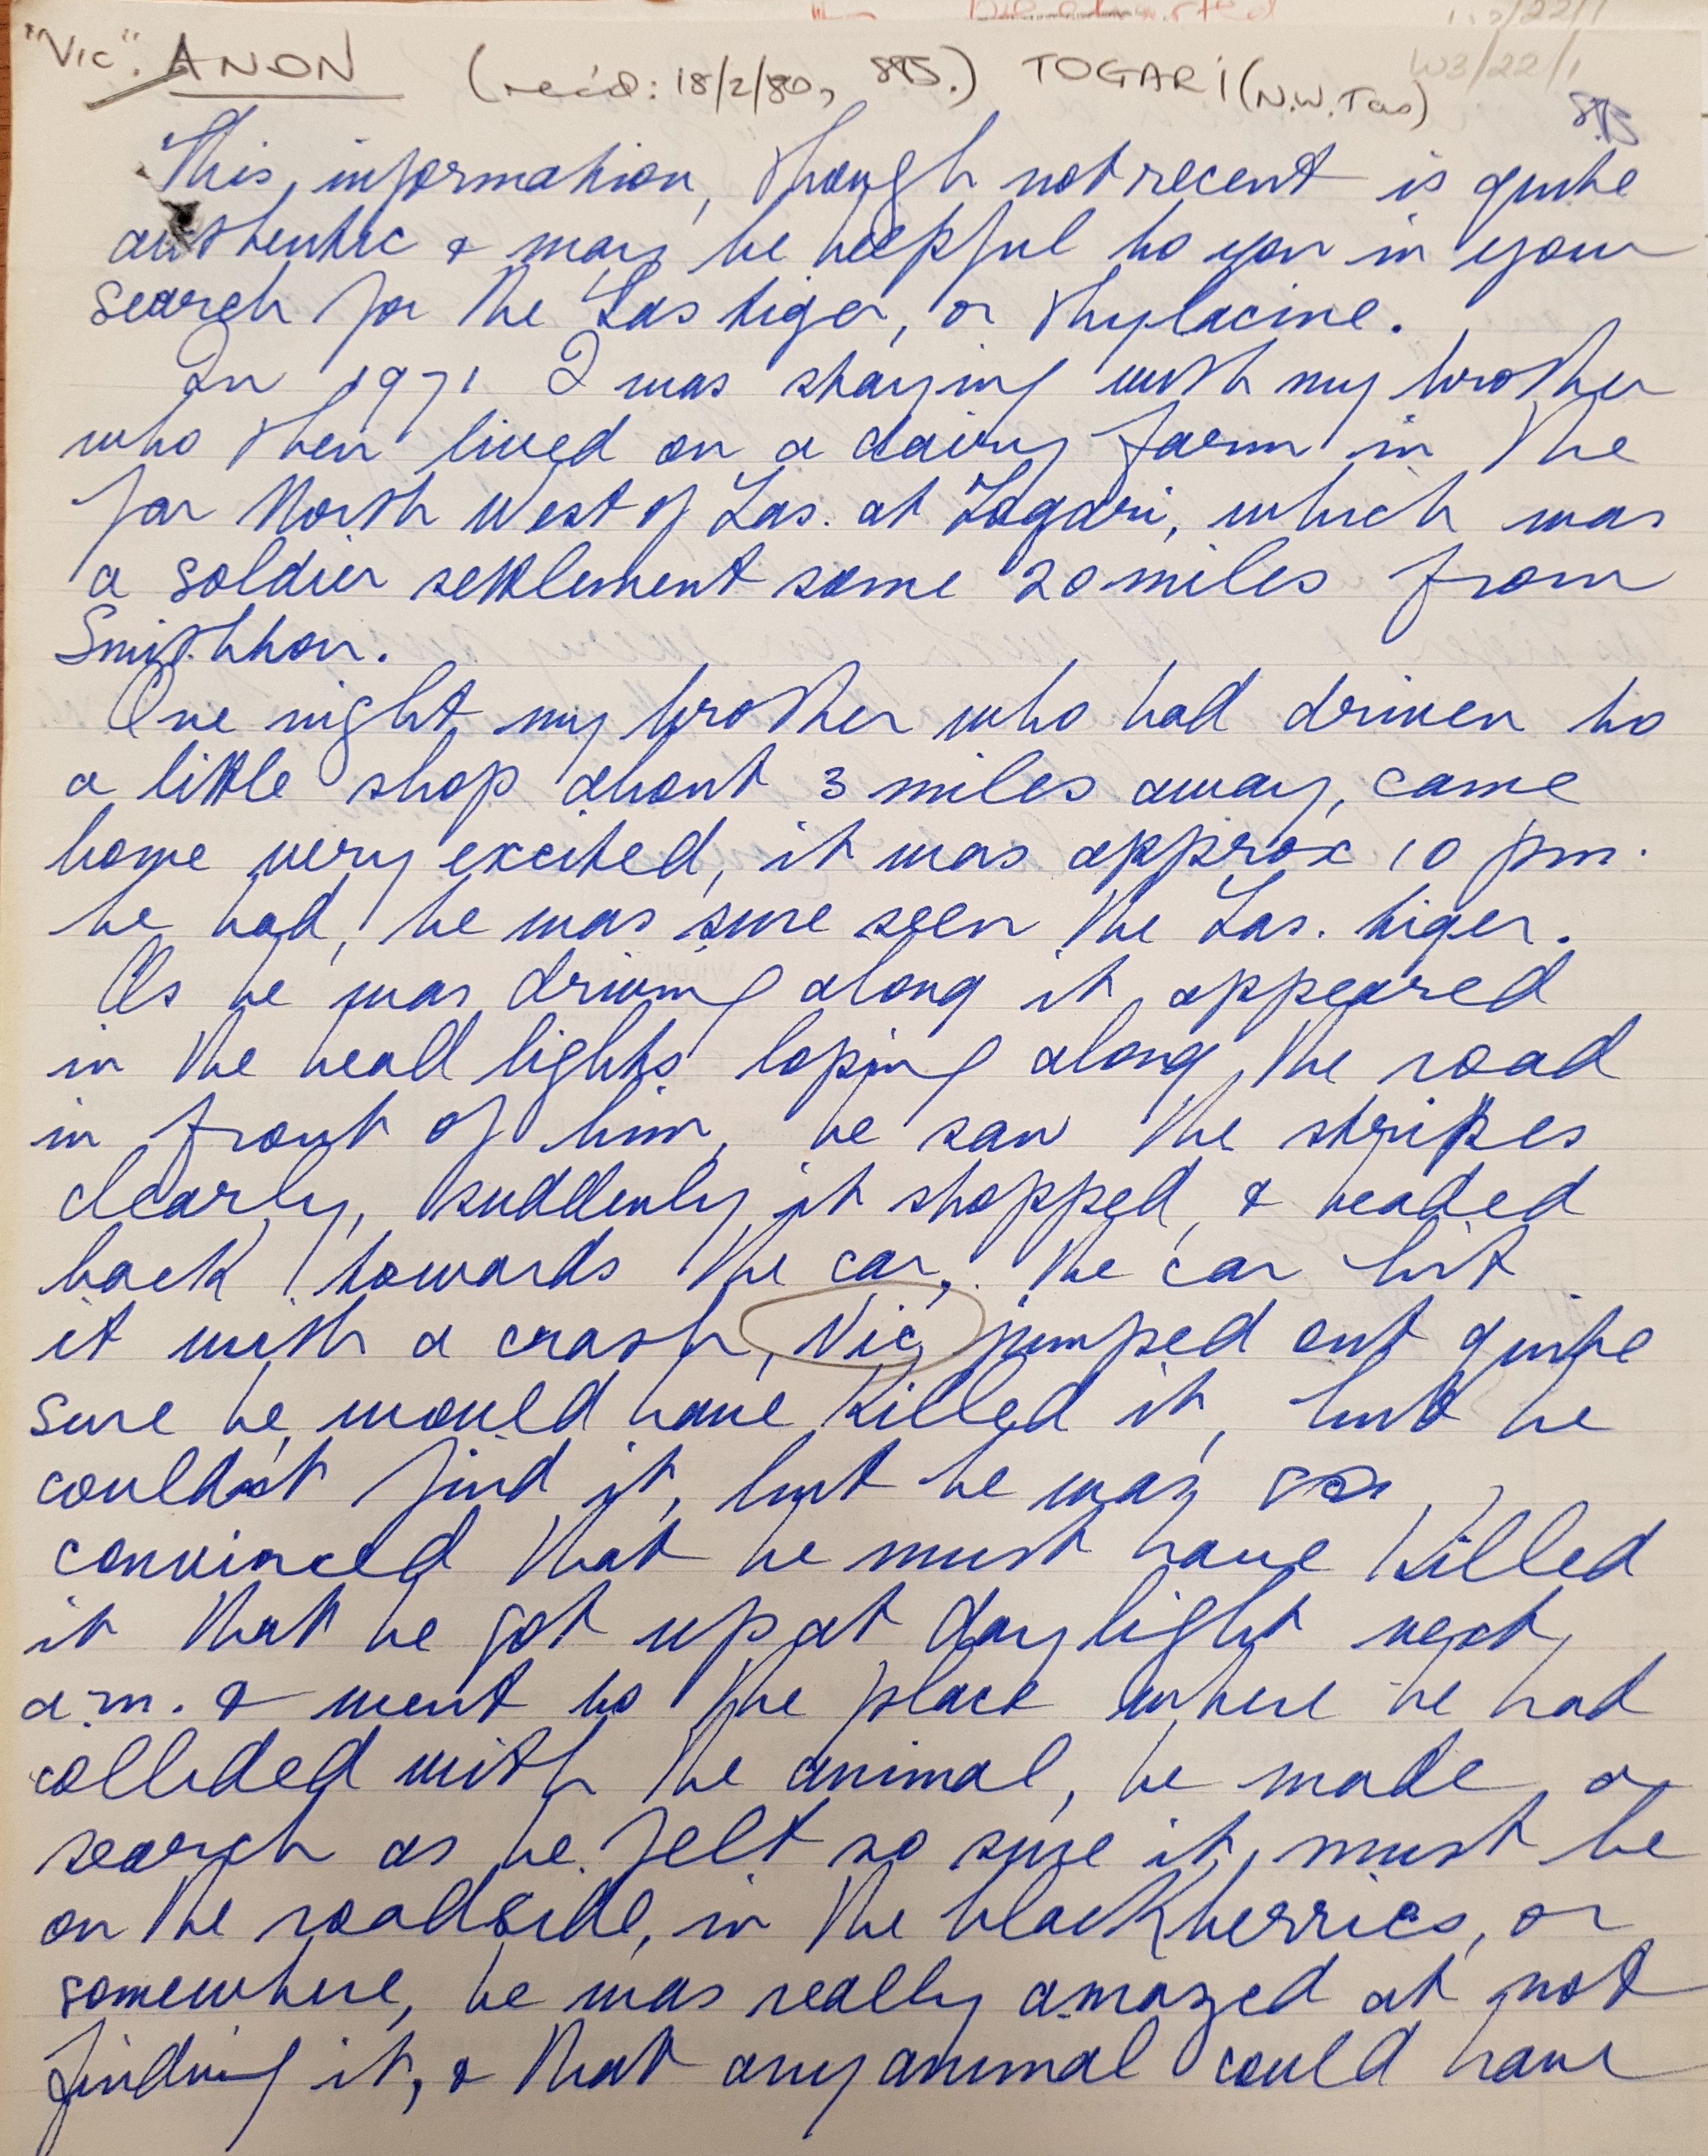 W3/22/1
"Vic". ANON (rec'd: 18/2/80, SJS.) TOGARI (N.W. Tas)
SJS
This, information, though not recent is quite
authentic & may be helpful to you in your
search for the Tas tiger, or Thylacine.
In 1971 I was staying with my brother
who then lived on a dairy farm in the
far North West of Tas. at Togari, which was
a soldier settlement some 20 miles from
Smithton.
One night my brother who had driven to
a little shop about 3 miles away, came
home very excited, it was approx 10 pm.
he had, he was sure seen the Tas. tiger.
As he was driving along it appeared
in the head lights loping along the road
in front of him, he saw the stripes
clearly, suddenly it stopped, & headed
back towards the car, the car hit
it with a crash, Vic, jumped out quite
sure he would have killed it, but he
couldnt find it, but he was so
convinced that he must have killed
it that he got up at daylight next
a.m. & went to the place where he had
collided with the animal, he made a
search as he felt so sure it must be
on the roadside, in the blackberries, or
somewhere, he was really amazed at not
finding it, & that any animal could have